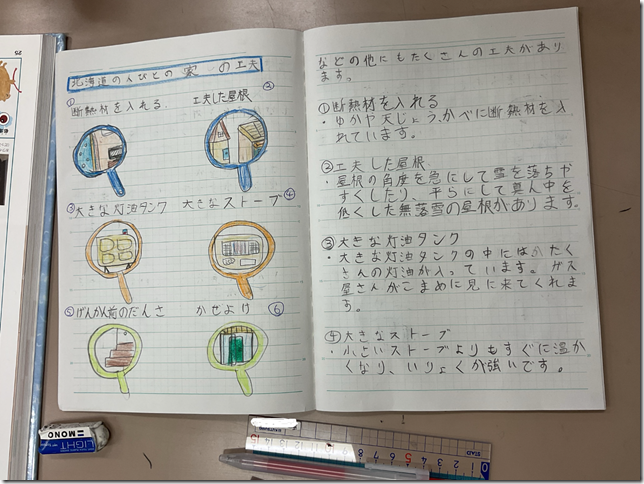 北海道の人びとの 家 の工夫
①
断熱材を入れる
工夫した屋根
②
③大きな灯油タンク
大きなストーブ④
⑤げんかん前のだんさ
かぜよけ ⑥
などの他にもたくさんの工夫があり
ます。
①断熱材を入れる
・ゆかや天じょう、かべに断熱材を入
れています。
②工夫した屋根
・屋根の角度を急にして雪を落ちや
すくしたり、平らにして真ん中を
低くした無落雪の屋根があります。
③大きな灯油タンク
・大きな灯油タンクの中にはたく
さんの灯油が入っています。ガス
屋さんがこまめに見に来てくれま
す。
④大きなストーブ
・小さいストーブよりもすぐに温か
くなり、いりょくが強いです。
LIGHT
MONO
STAD
15 14 13 12 11 10 9 8 7 6 5 4 3 2 1 0
25